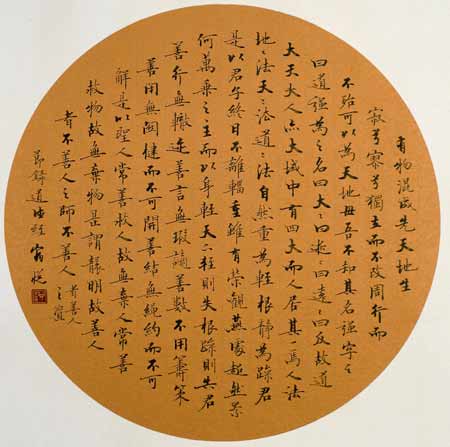 有物混成先天地生
寂兮寥兮獨立而不改周行而
不殆可以為天地母吾不知其名強字之
曰道強為之名曰大〻曰逝〻曰遠〻曰反故道
大天大人亦大域中有四大而人居其一焉人法
地〻法天〻法道〻法自然重為輕根静為躁君
是以君子終日不離輜重雖有榮觀燕處超然奈
何萬乘之主而以身輕天下輕則失根躁則失君
善行無轍迹善言無瑕讁善數不用籌策
善閉無關楗而不可開善結無繩約而不可
解是以聖人常善救人故無棄人常善
救物故無棄物是謂襲明故善人
者不善人之師不善人
者善人
之資
節錄道德經